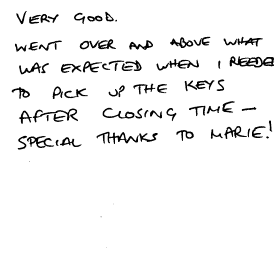 VERY GOOD.
WENT OVER AND ABOVE WHAT
WAS EXPECTED WHEN I NEEDED
TO PICK UP THE KEYS
AFTER CLOSING TIME —
SPECIAL THANKS TO MARIE!